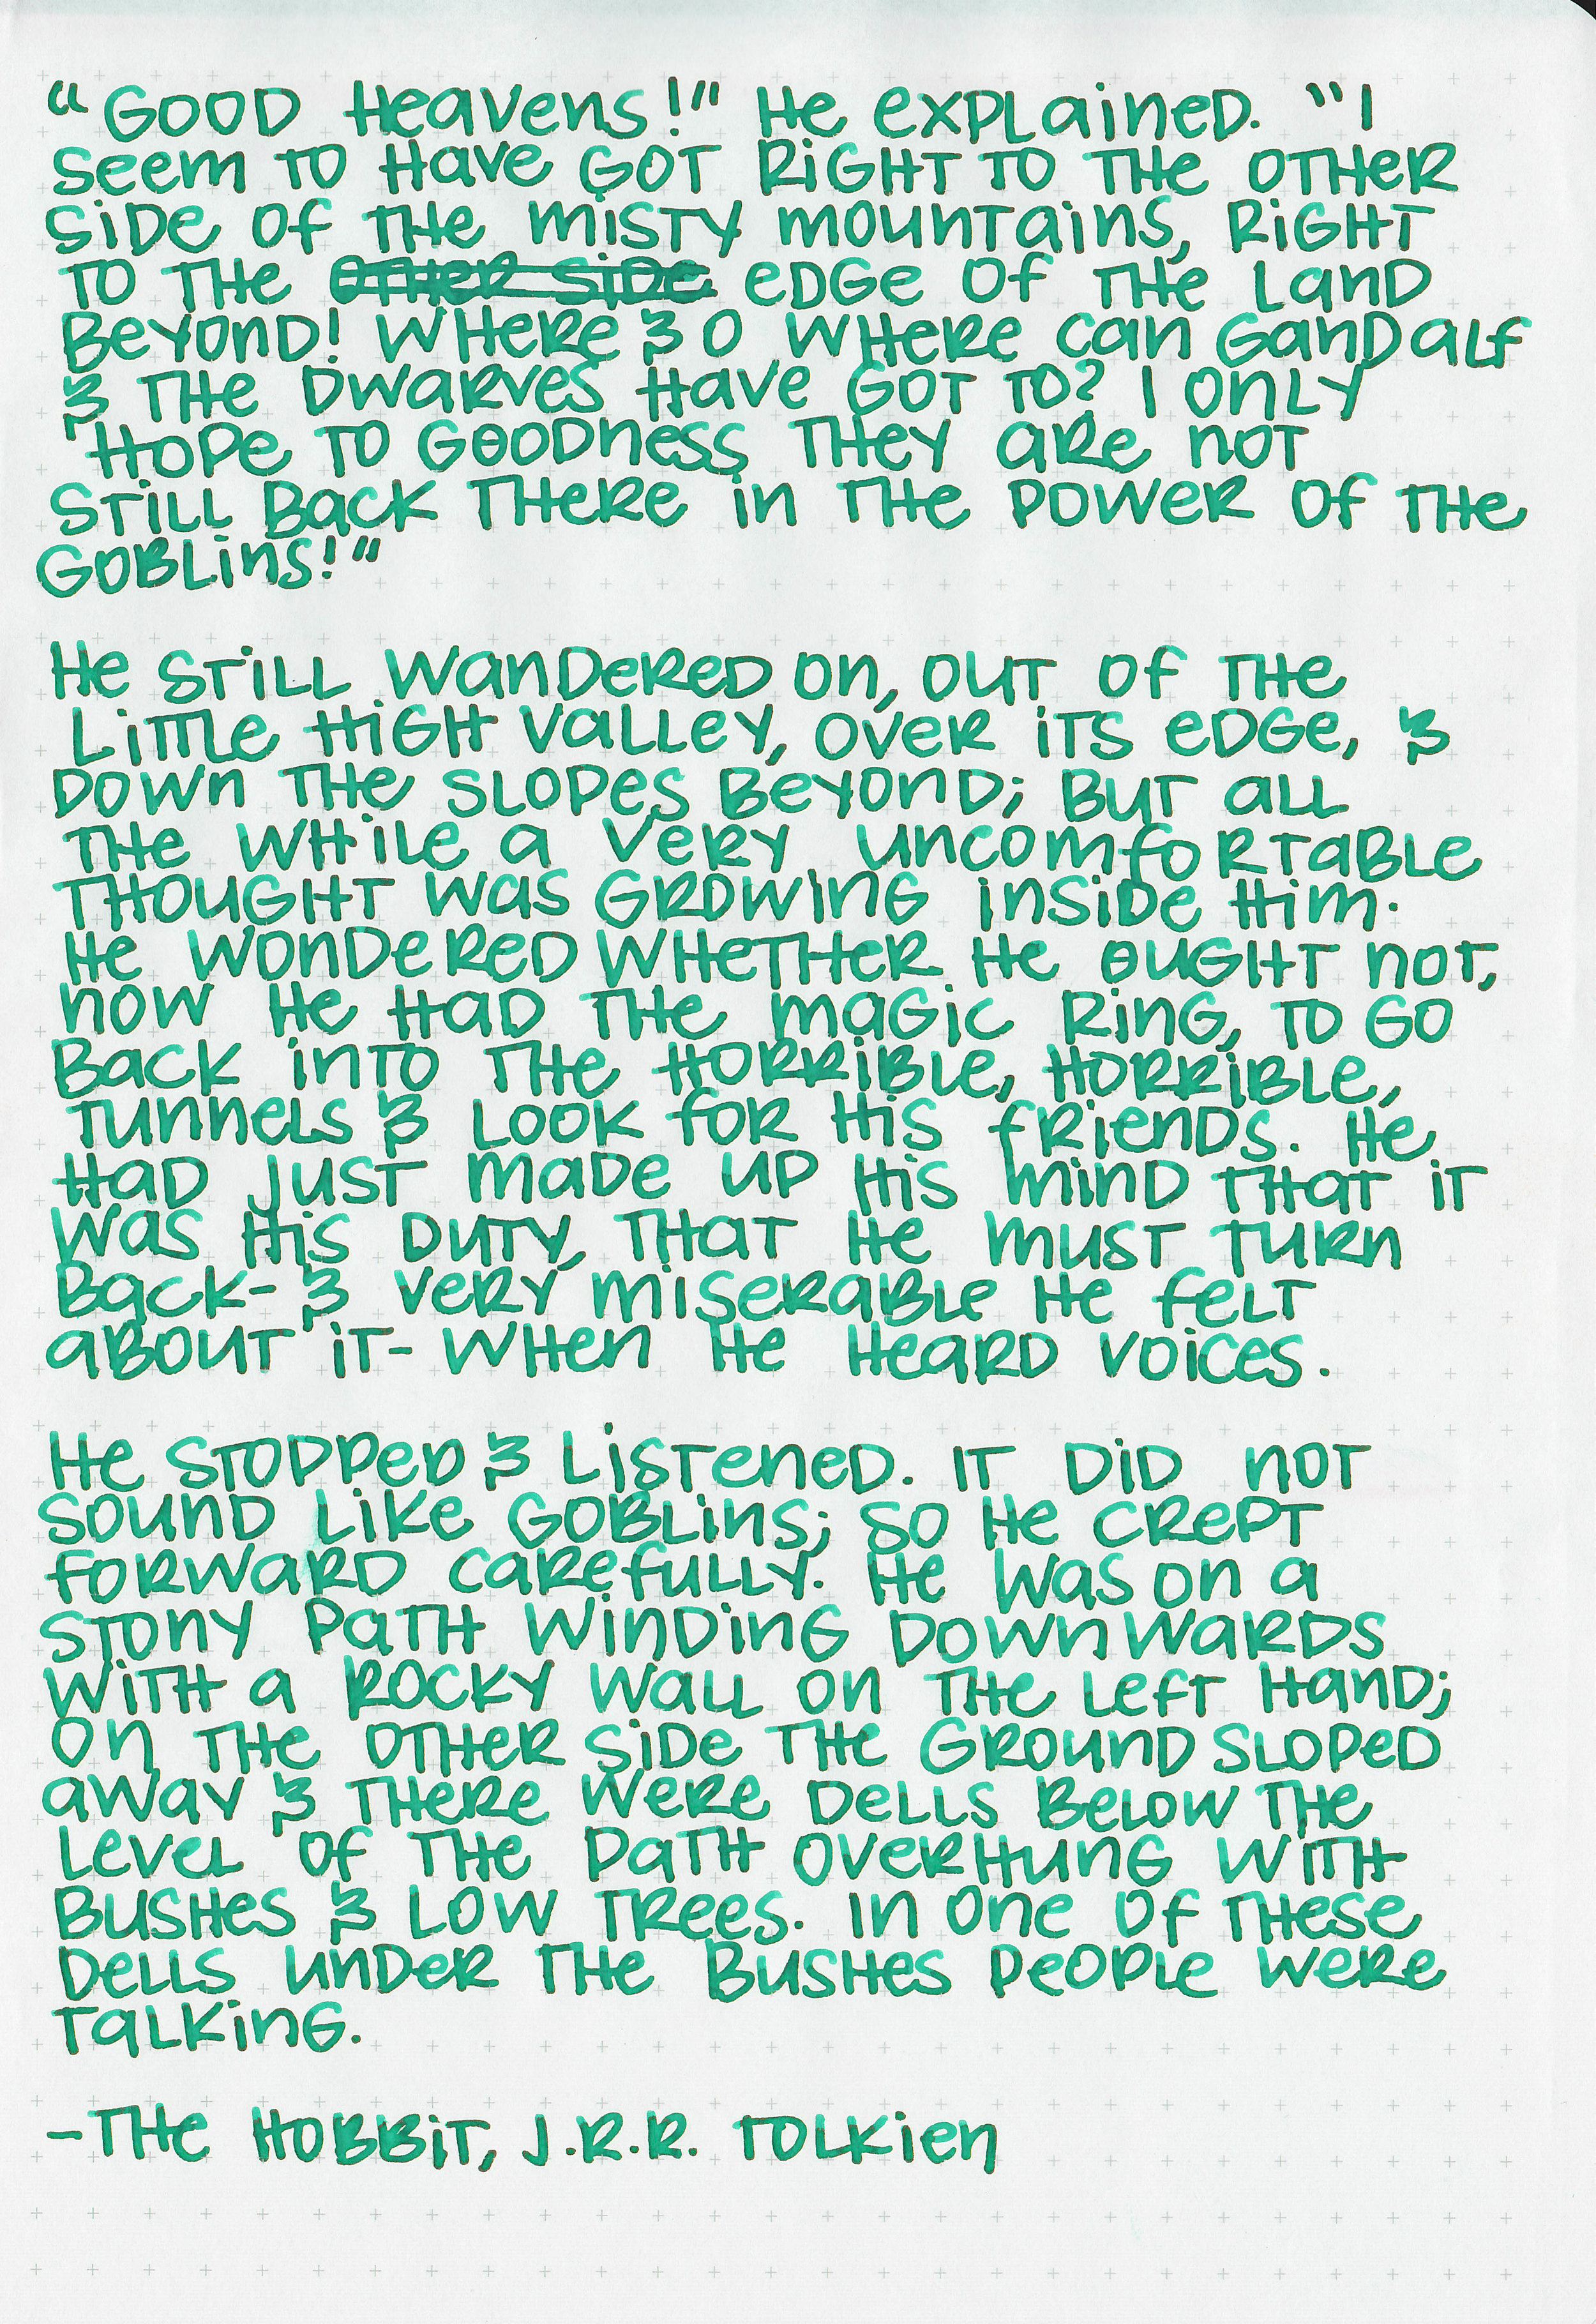 "Good Heavens!" He explained. "I
seem to have got right to the other
side of the misty mountains, right
to the other side edge of the land
beyond! Where & O where can Gandalf
& the dwarves have got to? I only
hope to goodness they are not
still back there in the power of the
goblins!"
He still wandered on, out of the
little high valley, over its edge, &
down the slopes beyond; but all
the while a very uncomfortable
thought was growing inside him.
He wondered whether he ought not,
now he had the magic ring, to go
back into the horrible, horrible,
tunnels & look for his friends. He
had just made up his mind that it
was his duty, that he must turn
back- & very miserable he felt
about it- when he heard voices.
He stopped & listened. It did not
sound like goblins; so he crept
forward carefully. He was on a
stony path winding downwards
with a rocky wall on the left hand;
on the other side the ground sloped
away & there were dells below the
level of the path overhung with
bushes & low trees. In one of these
dells under the bushes people were
talking.
-The Hobbit, J.R.R. Tolkien